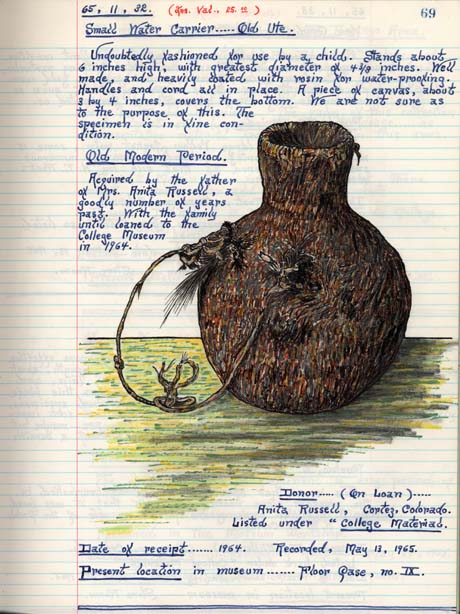 65, 11, 32. (Ins. Val., 25.00)
69
Small Water Carrier..... Old Ute.
Undoubtedly fashioned for use by a child. Stands about
6 inches high, with greatest diameter of 4 3/4 inches. Well
made, and heavily coated with rosin for water-proofing.
Handles and cord all in place. A piece of canvas, about
3 by 4 inches, covers the bottom. We are not sure as
to the purpose of this. The
specimen is in fine con-
dition.
Old Modern Period.
Acquired by the father
of Mrs. Anita Russell, a
goodly number of years
past. With the family
until loaned to the
College Museum
in 1964.
Donor..... (On Loan).....
Anita Russell, Cortez, Colorado.
Listed under "College Material.
Date of receipt....... 1964. Recorded, May 13, 1965.
Present location in museum....... Floor Case, no. IX.